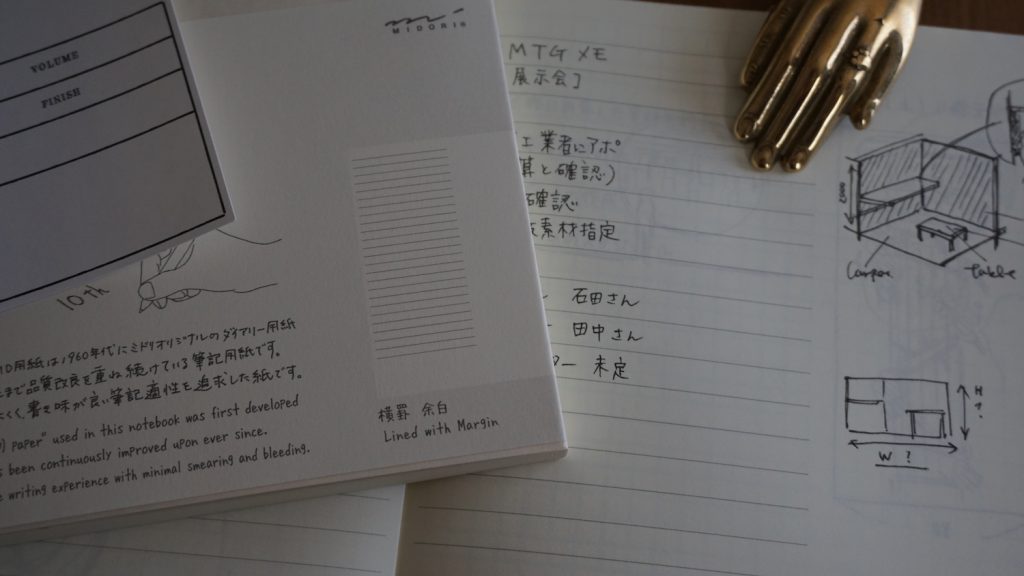 VOLUME
FINISH
MIDORI
10th
MD用紙は1960年代にミドリオリジナルのダイアリー用紙
まで品質改良を重ね続けている筆記用紙です。
にくく、書き味が良い筆記適性を追求した紙です。
paper" used in this notebook was first developed
been continuously improved upon ever since.
writing experience with minimal smearing and bleeding.
横罫 余白
Lined with Margin
MTG
展示会」
工業者にアポ
と確認)
確認
素材指定
石田さん
田中さん
ー 未定
table
H ?
W ?